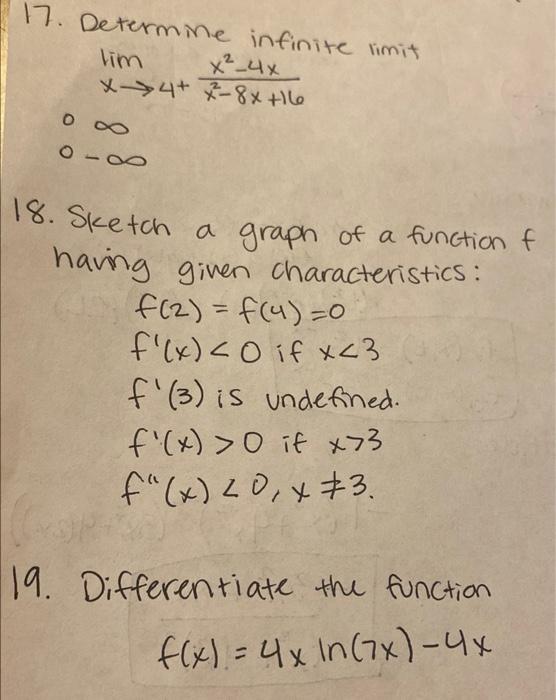 17. Determine infinite limit
lim x²-4x
x→4+ x²-8x+16
○ ∞
○ -∞
18. Sketch a graph of a function f
having given characteristics:
f(2) = f(4) = 0
f'(x) < 0 if x<3
f'(3) is undefined.
f'(x) > 0 if x>3
f"(x) < 0, x ≠ 3.
19. Differentiate the function
f(x) = 4x ln(7x) - 4x